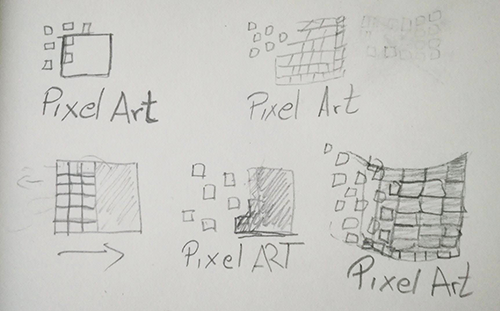 Pixel Art
Pixel Art
Pixel ART
Pixel Art